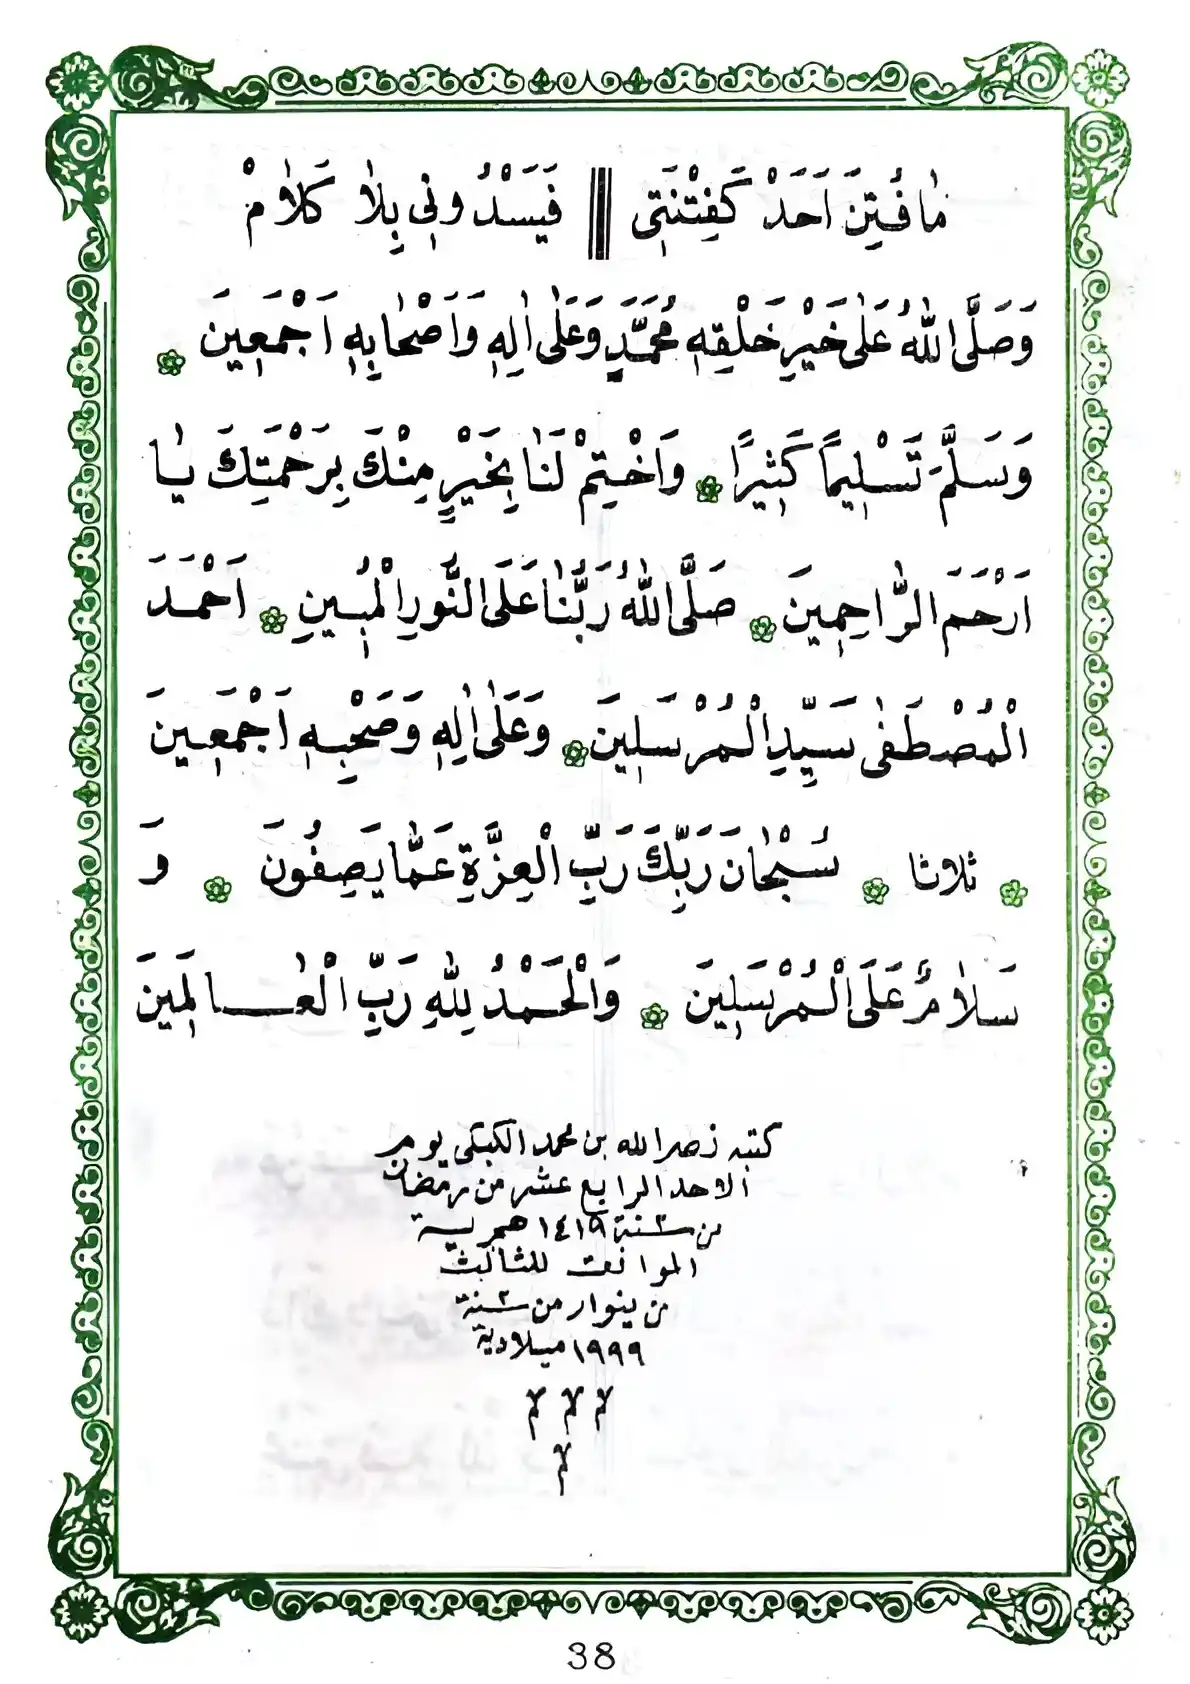 مٰا فُتِنَ اَحَدْ كَفِتْنَتِى فَيَسْدُ ونِى بِلاٰ كَلاٰمْ
وَصَلَّى اللهُ عَلٰى خَيْرِ خَلْقِهِ مُحَمَّدٍ وَعَلٰى اٰلِهِ وَاَصْحٰابِهِ اَجْمَعِينَ
وَسَلَّمَ تَسْلِيمًا كَثِيرًا وَاخْتِمْ لَنٰا بِخَيْرٍ مِنْكَ بِرَحْمَتِكَ يٰا
اَرْحَمَ الرّٰاحِمِينَ صَلَّى اللهُ رَبُّنٰا عَلَى النُّورِ الْمُبِينِ اَحْمَدَ
الْمُصْطَفٰى سَيِّدِ الْمُرْسَلِينَ وَعَلٰى اٰلِهِ وَصَحْبِهِ اَجْمَعِينَ
ثلاثا سُبْحٰانَ رَبِّكَ رَبِّ الْعِزَّةِ عَمّٰا يَصِفُونَ وَ
سَلاٰمٌ عَلَى الْمُرْسَلِينَ وَالْحَمْدُ لِلّٰهِ رَبِّ الْعٰالَمِينَ
كتبه نصر الله بن محمد الكبكى يوم
الاحد الرابع عشر من رمضان
من سنة ١٤١٩ هجرية
الموافق للثالث
من ينوار من سنة
١٩٩٩ ميلادية
م م م
م
38